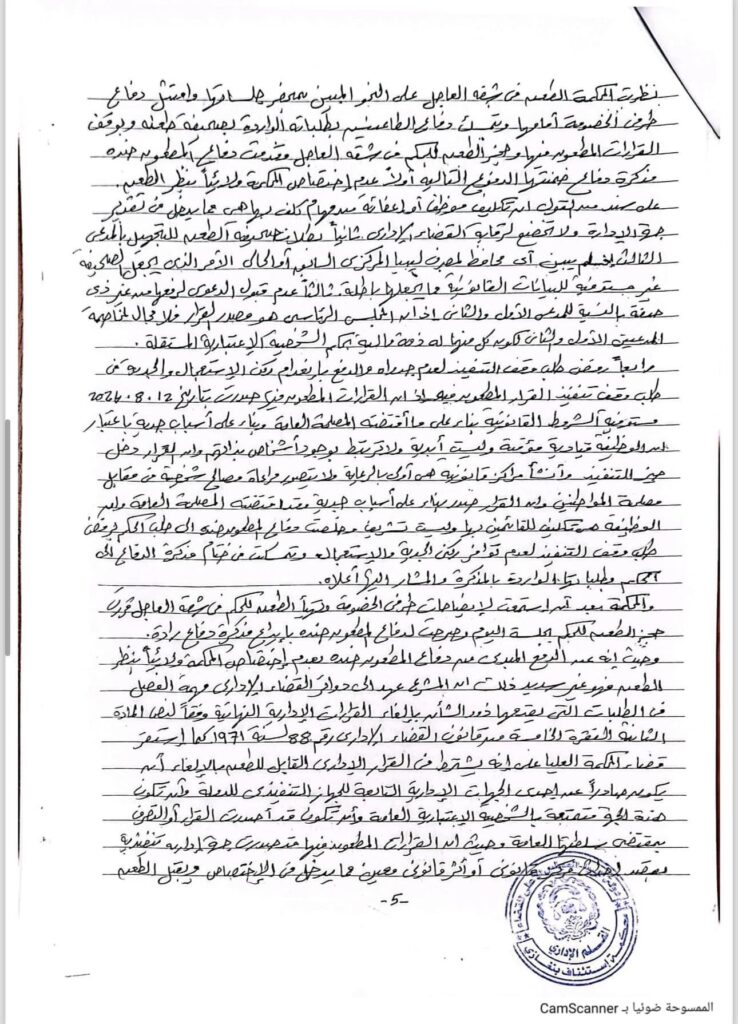 نظرت المحكمة الطعن في شقه العاجل على النحو المبين بمحضر جلساتها وامتثل دفاع
طرفي الخصومة أمامها وتمسك دفاع الطاعنين بطلباته الواردة بصحيفة طعنه وبوقف
القرارات المطعون فيها وحجز الطعن للحكم في شقه العاجل وقدمت دفاع المطعون ضده
مذكرة دفاع ضمنتها الدفوع التالية أولاً عدم إختصاص المحكمة ولائياً بنظر الطعن
على سند من القول ان تكليف موظف أو إعفائه من مهام كلف بها هي مما يدخل في تقدير
جهة الإدارة ولا تخضع لرقابة القضاء الإداري ثانياً بطلان صحيفة الطعن للتجهيل بالمدعي
الثالث إذ لم يبين أي محافظ لمصرف ليبيا المركزي السابق أو الحالي الأمر الذي يجعل الصحيفة
غير مستوفية للبيانات القانونية مما يجعلها باطلة. ثالثاً عدم قبول الدعوى لرفعها من غير ذي
صفة بالنسبة للمدعى الأول والثاني إذ ان المجلس الرئاسي هو مصدر القرار فلا مجال لمخاصمة
المدعيين الأول والثاني لكون كل منهما له ذمة مالية بحكم الشخصية الإعتبارية المستقلة.
رابعاً رفض طلب وقف التنفيذ لعدم جدواه والدفع بإنعدام ركن الإستعجال والجدية في
طلب وقف تنفيذ القرار المطعون فيه إذ ان القرارات المطعون فيها صدرت بتاريخ 12-8-2024
مستوفية الشروط القانونية بناء على ما أقتضته المصلحة العامة وبناء على أسباب جدية بإعتبار
ان الوظيفة قيادية مؤقتة وليست أبدية ولا ترتبط بوجود أشخاص بذاتهم وان القرار دخل
حيز التنفيذ وأنشأ مراكز قانونية هي أولى بالرعاية ولا يتصور مراعاة مصالح شخصية في مقابل
مصلحة المواطنين وان القرار صدر بناء على أسباب جدية وقد اقتضته المصلحة العامة وان
الوظيفة هي تكليف للقائمين بها وليست تشريف وخلصت دفاع المطعون ضده الى طلب الحكم برفض
طلب وقف التنفيذ لعدم توافر ركني الجدية والإستعجال وتمسكت في ختام مذكرة الدفاع الى
الحكم وطلباتها الواردة بالمذكرة والمشار إليها أعلاه.
والمحكمة بعد أن استمعت لإيضاحات طرفي الخصومة ولتهيأ الطعن للحكم في شقه العاجل قررت
حجز الطعن للحكم لجلسة اليوم وصرحت لدفاع المطعون ضده بإيداع مذكرة دفاع رادة.
وحيث إنه عن الدفع المبدى من دفاع المطعون ضده بعدم إختصاص المحكمة ولائياً بنظر
الطعن فهو غير سديد ذلك ان المشرع عهد الى دوائر القضاء الإداري مهمة الفصل
في الطلبات التي يقدمها ذوو الشأن بإلغاء القرارات الإدارية النهائية وفقاً لنص المادة
الثانية الفقرة الخامسة من قانون القضاء الإداري رقم 88 لسنة 1971 كما إستقر
قضاء المحكمة العليا على إنه يشترط في القرار الإداري القابل للطعن بالإلغاء أن
يكون صادراً عن إحدى الجهات الإدارية التابعة للجهاز التنفيذي للدولة وأن تكون
هذه الجهة متمتعة بالشخصية الإعتبارية العامة وأن تكون قد أصدرت القرار أو التصرف
بمقتضى سلطتها العامة وحيث ان القرارات المطعون فيها قد صدرت من جهة إدارية تنفيذية
بقصد إحداث مركز قانوني أو أثر قانوني معين مما يدخل في الإختصاص ويقبل الطعن
-5-
محكمة إستئناف بنغازي
القلم الإداري
الممسوحة ضوئيا بـ CamScanner